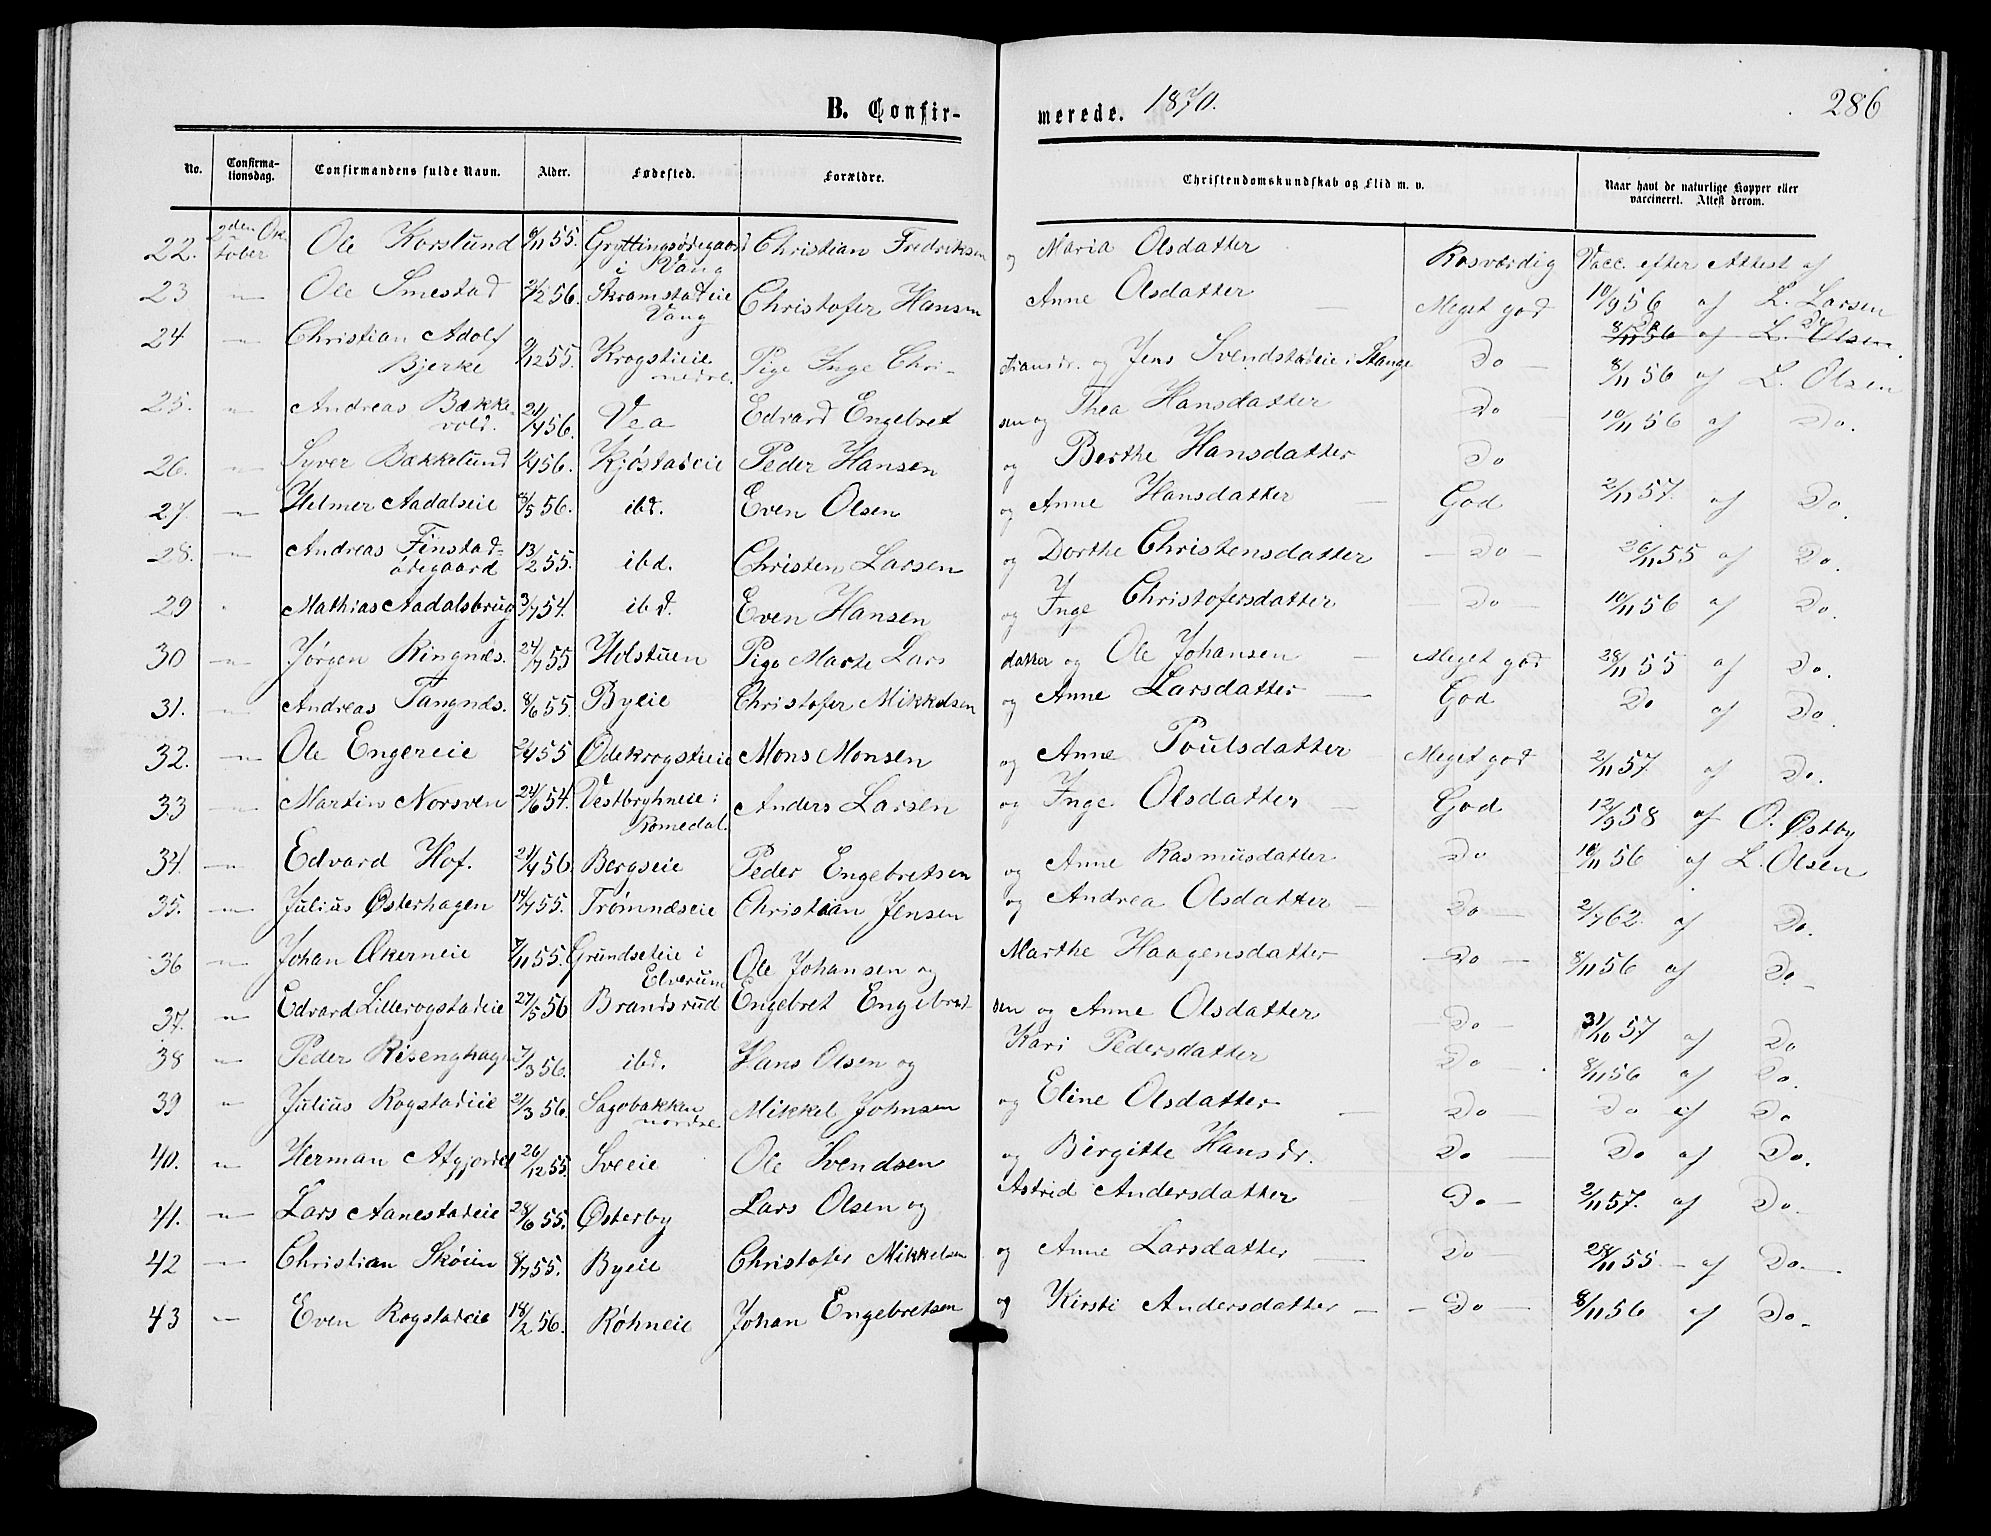 B. Confir-
merede. 1870.
286
No.
Confirma-
tionsdag.
Confirmandens fulde Navn.
Alder.
Fødested.
Forældre.
Christendomskundskab og Flid m. v.
Naar havt de naturlige Kopper eller
vaccineret. Attest derom.
22. 2den Oc- Ole Korslund 6/11 55. Gryttingsødegaard Christian Fredriksen og Maria Olsdatter Rosværdig Vacc. efter Attest af
tober i Vang
23 " Ole Smestad 2/2 56. Skramstadeie Christofer Hansen Anne Olsdatter — Meget god 10/9 56 af L. Larsen
Vang
24 " Christian Adolf 9/12 55. Krogstieie Pige Inge Chri- stiansdr. og Jens Svendstadeie i Stange Do — 8/11 56 af L. Olsen
Bjerke nedre.
25. " Andreas Bække- 21/4 56. Vea Edvard Engebret sen og Thea Hansdatter Do 10/11 56 af Do.
vold.
26. " Syver Bækkelund 1/4 56. Kjøstadeie Peder Hansen og Berthe Hansdatter Do
27. " Helmer Aadalseie 8/5 56. ibd. Even Olsen og Anne Hansdatter — God 2/11 57. af Do.
28. " Andreas Finstad- 13/2 55. ibd. Christen Larsen og Dorthe Christensdatter — Do — 26/11 55 af Do.
ødegaard
29 " Mathias Aadalsbrug 3/7 54. ibd. Even Hansen og Inge Christofersdatter — Do — 10/11 56 af Do.
30 " Jørgen Ringnæs. 24/7 55 Holstuen Pige Marte Lars datter og Ole Johansen — Meget god 28/11 55 af Do.
31. " Andreas Tangnæs. 8/6 55. Byeie Christofer Mikkelsen og Anne Larsdatter — God Do af Do.
32. " Ole Engereie 2/4 55 Ødekrogstieie Mons Monsen og Anne Poulsdatter Meget god 2/11 57. af Do.
33 " Martin Norsven 24/6 54. Vestbryhneie i Anders Larsen og Inge Olsdatter — God 12/9 58 af O. Østby
Romedal.
34. " Edvard Hof. 21/4 56 Bergseie Peder Engebretsen og Anne Rasmusdatter Do 10/11 56 af L. Olsen
35. " Julius Østerhagen 14/7 55. Trømnæseie Christian Jensen og Andrea Olsdatter — Do — 2/7 62. af Do.
36 " Johan Økerneie 7/11 55. Grundseteie i Ole Johansen og Marthe Haagensdatter — Do — 8/11 56 af Do.
Elverum
37. " Edvard Lillerogstadeie 27/5 56 Brandsrud Engebret Engebret- sen og Anne Olsdatter — Do — 31/10 57 af Do
38 " Peder Risenghagn 7/3 56. ibd. Hans Olsen og Kari Pedersdatter Do — 8/11 56 af Do.
39 " Julius Rogstadeie 21/3 56. Sagbakken Mikkel Johnsen og Eline Olsdatter — Do — Do af Do
nordre
40. " Herman Afgjordet 26/12 55. Sveeie Ole Svendsen og Birgitte Hansdr. Do — Do af Do.
41. " Lars Aanestadeie 28/6 55. Østerby Lars Olsen og Astrid Andersdatter — Do — 2/11 57. af Do.
42 " Christian Skøien 8/7 55. Byeie Christofer Mikkelsen og Anne Larsdatter — Do — 28/11 55. — af Do.
43 " Even Rogstadeie 18/2 56. Røhneie Johan Engebretsen og Kirsti Andersdatter — Do — 8/11 56 af Do.